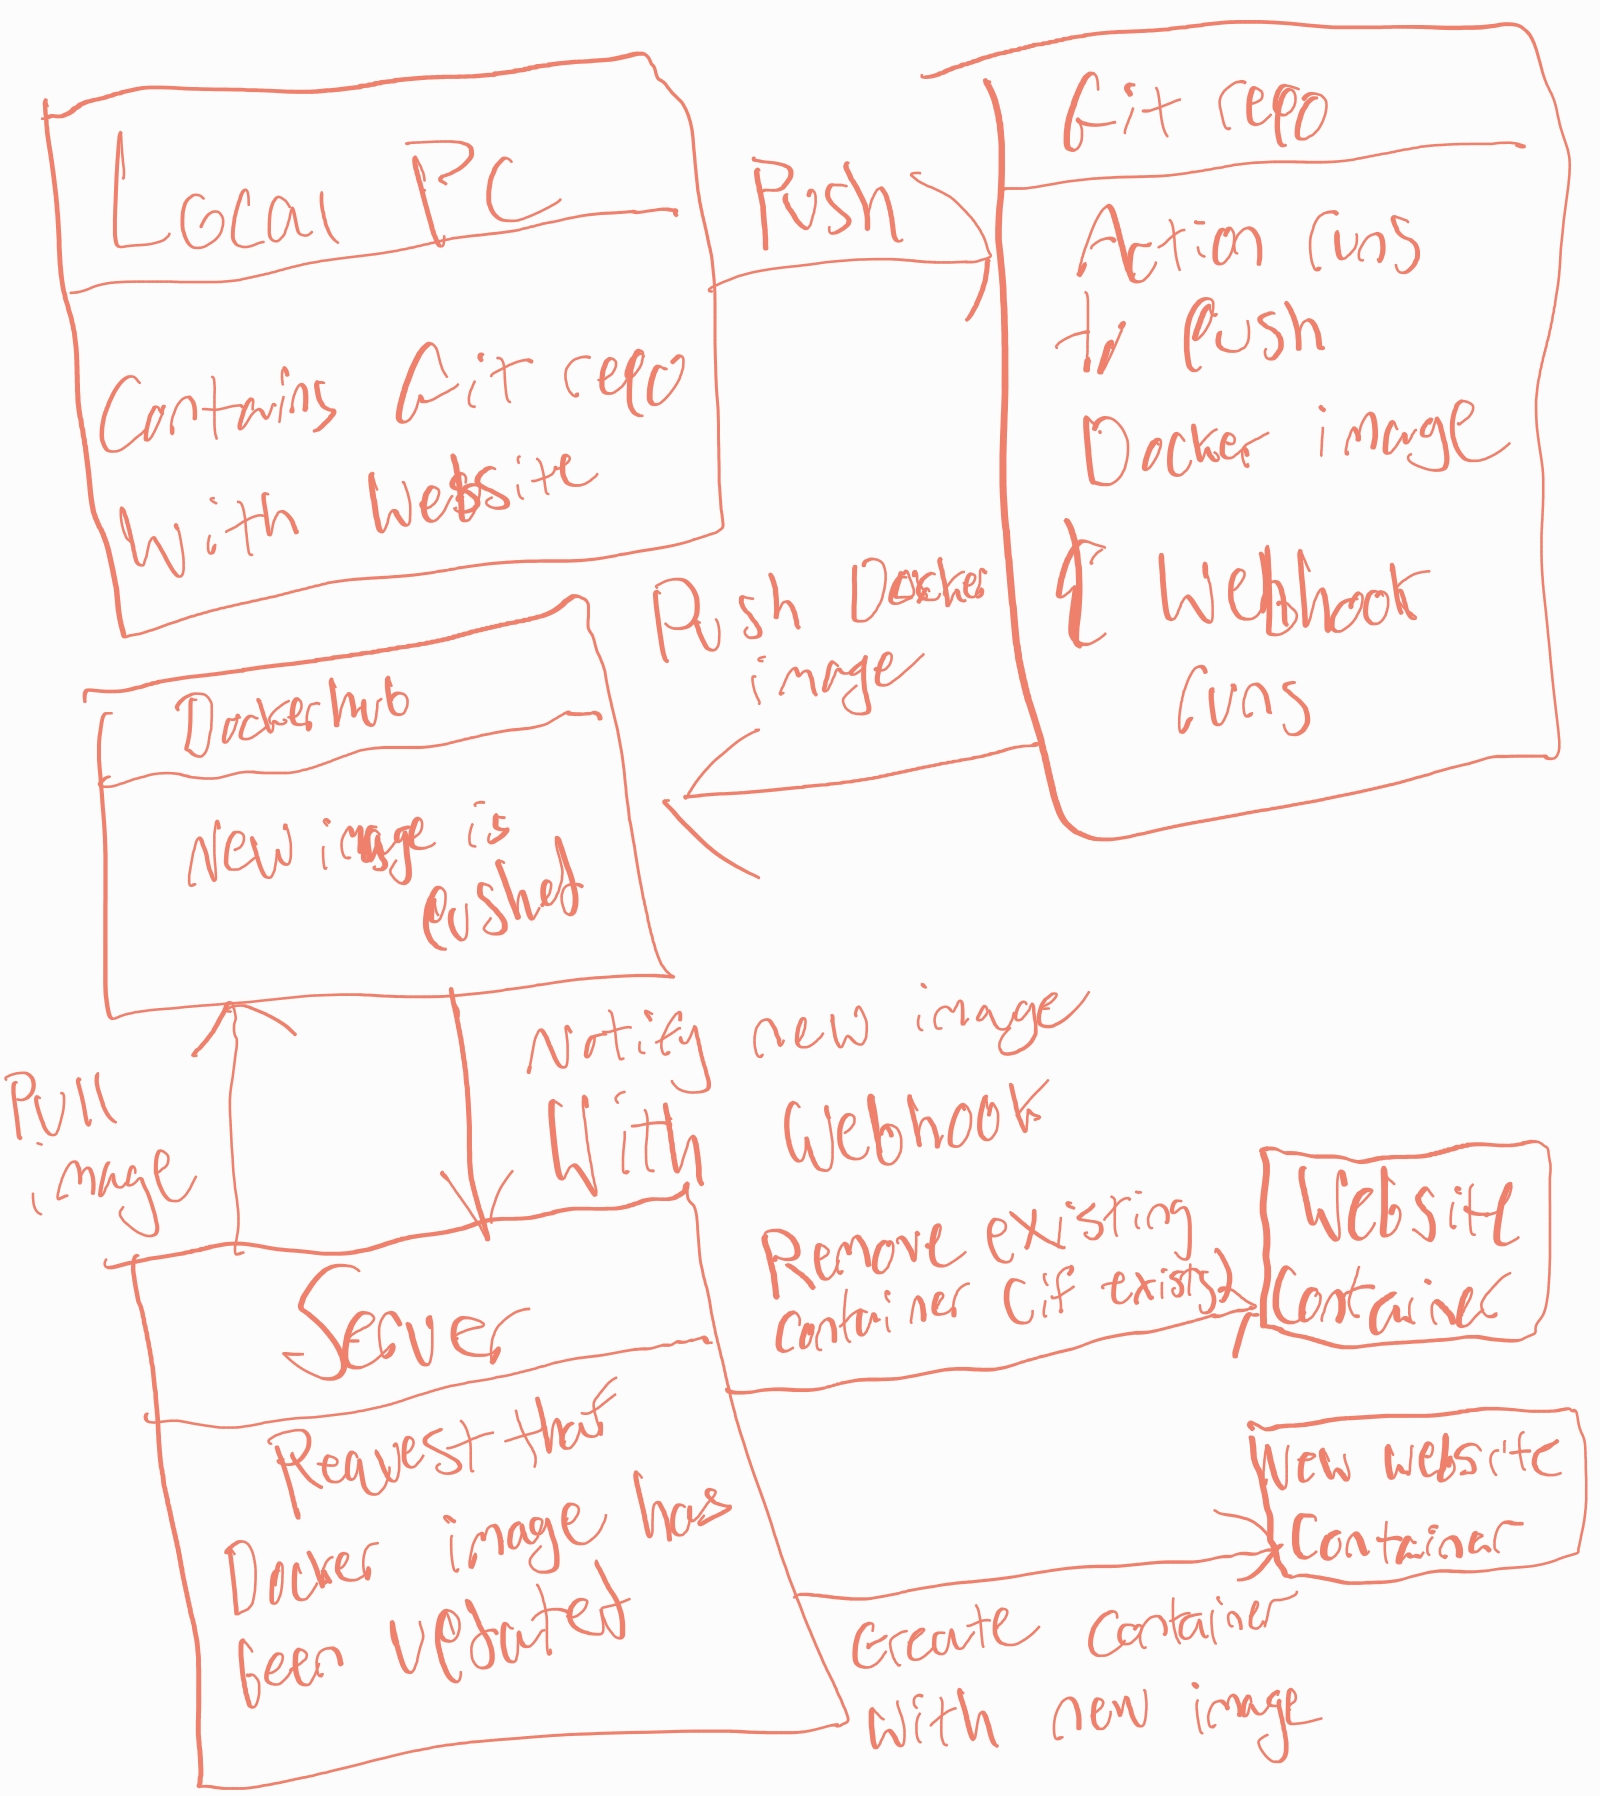 Local PC
Contains Git repo
With Website
Push
Git repo
Action runs
to push
Docker image
& Webhook
runs
Push Docker
image
Dockerhub
New image is
pushed
Pull
image
Notify new image
With Webhook
Server
Request that
Docker image has
been updated
Remove existing
container (if exists)
Website
Container
New website
Container
Create container
with new image